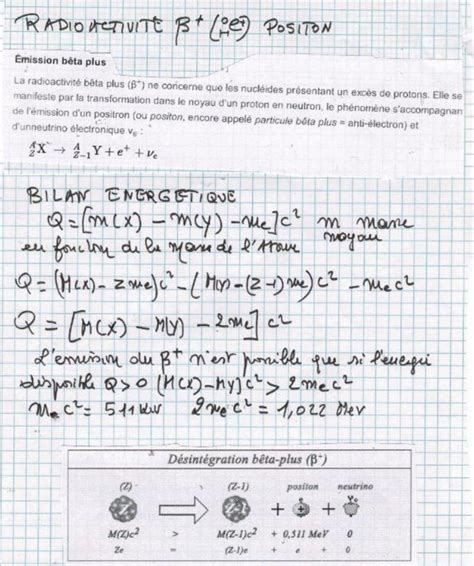 RADIOACTIVITE β⁺ (⁰₊₁e⁺) POSITON
Émission bêta plus
La radioactivité bêta plus (β⁺) ne concerne que les nucléides présentant un excès de protons. Elle se
manifeste par la transformation dans le noyau d'un proton en neutron, le phénomène s'accompagnan
de l'émission d'un positron (ou positon, encore appelé particule bêta plus = anti-électron) et
d'unneutrino électronique νₑ :
ᴬ_Z X → ᴬ_Z−1 Y + e⁺ + νₑ
BILAN ENERGETIQUE
Q = [m(X) − m(Y) − me]c² m masse
noyau
en fonction de la masse de l'Atome
Q = (M(X) − Zme)c² − (M(Y) − (Z−1)me)c² − mec²
Q = [M(X) − M(Y) − 2me] c²
L'emission du β⁺ n'est possible que si l'energie
disponible Q > 0 (M(X) − MY)c² > 2mec²
mec² = 511 keV 2mec² = 1,022 MeV
Désintégration bêta-plus (β⁺)
(Z) (Z-1) positon neutrino
Z Z-1 + +
M(Z)c² > M(Z-1)c² + 0,511 MeV 0
Ze = (Z-1)e + e + 0